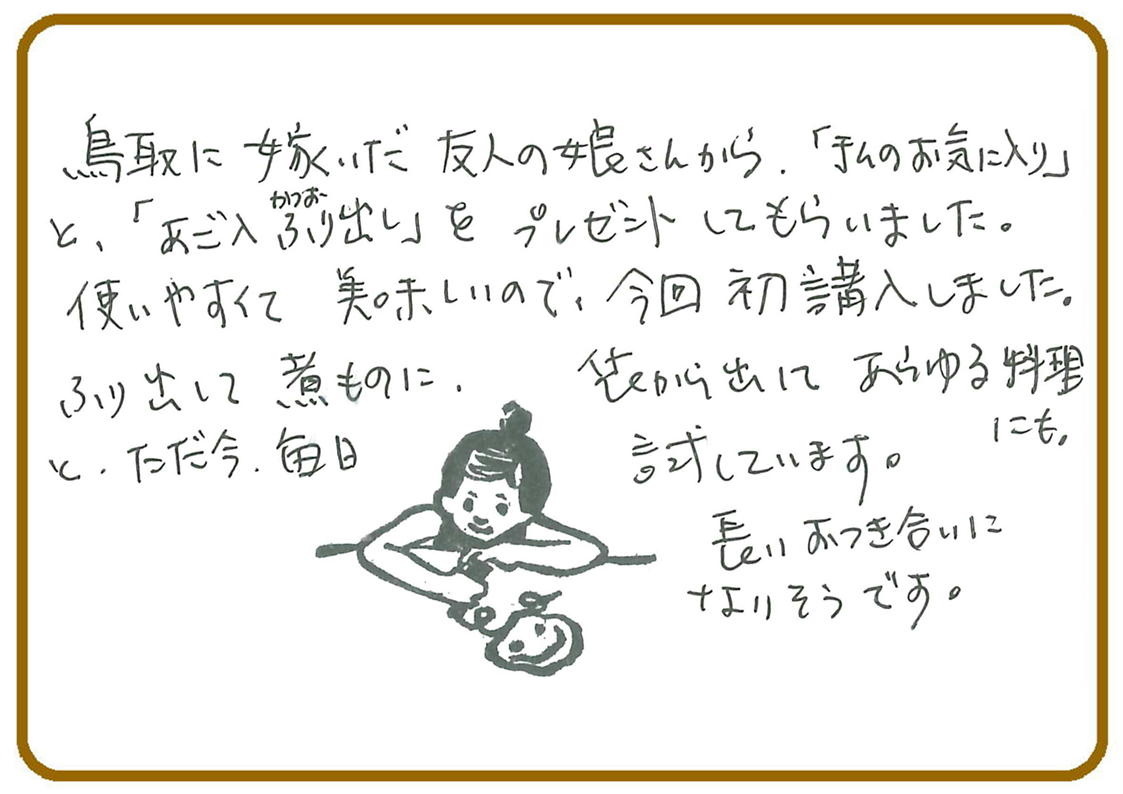 鳥取に嫁いだ友人の娘さんから、「私のお気に入り」
と、「あご入かつおふり出し」をプレゼントしてもらいました。
使いやすくて美味しいので、今回初講入しました。
ふり出して煮ものに、袋から出してあらゆる料理にも。
と、ただ今、毎日試しています。
長いおつき合いに
なりそうです。